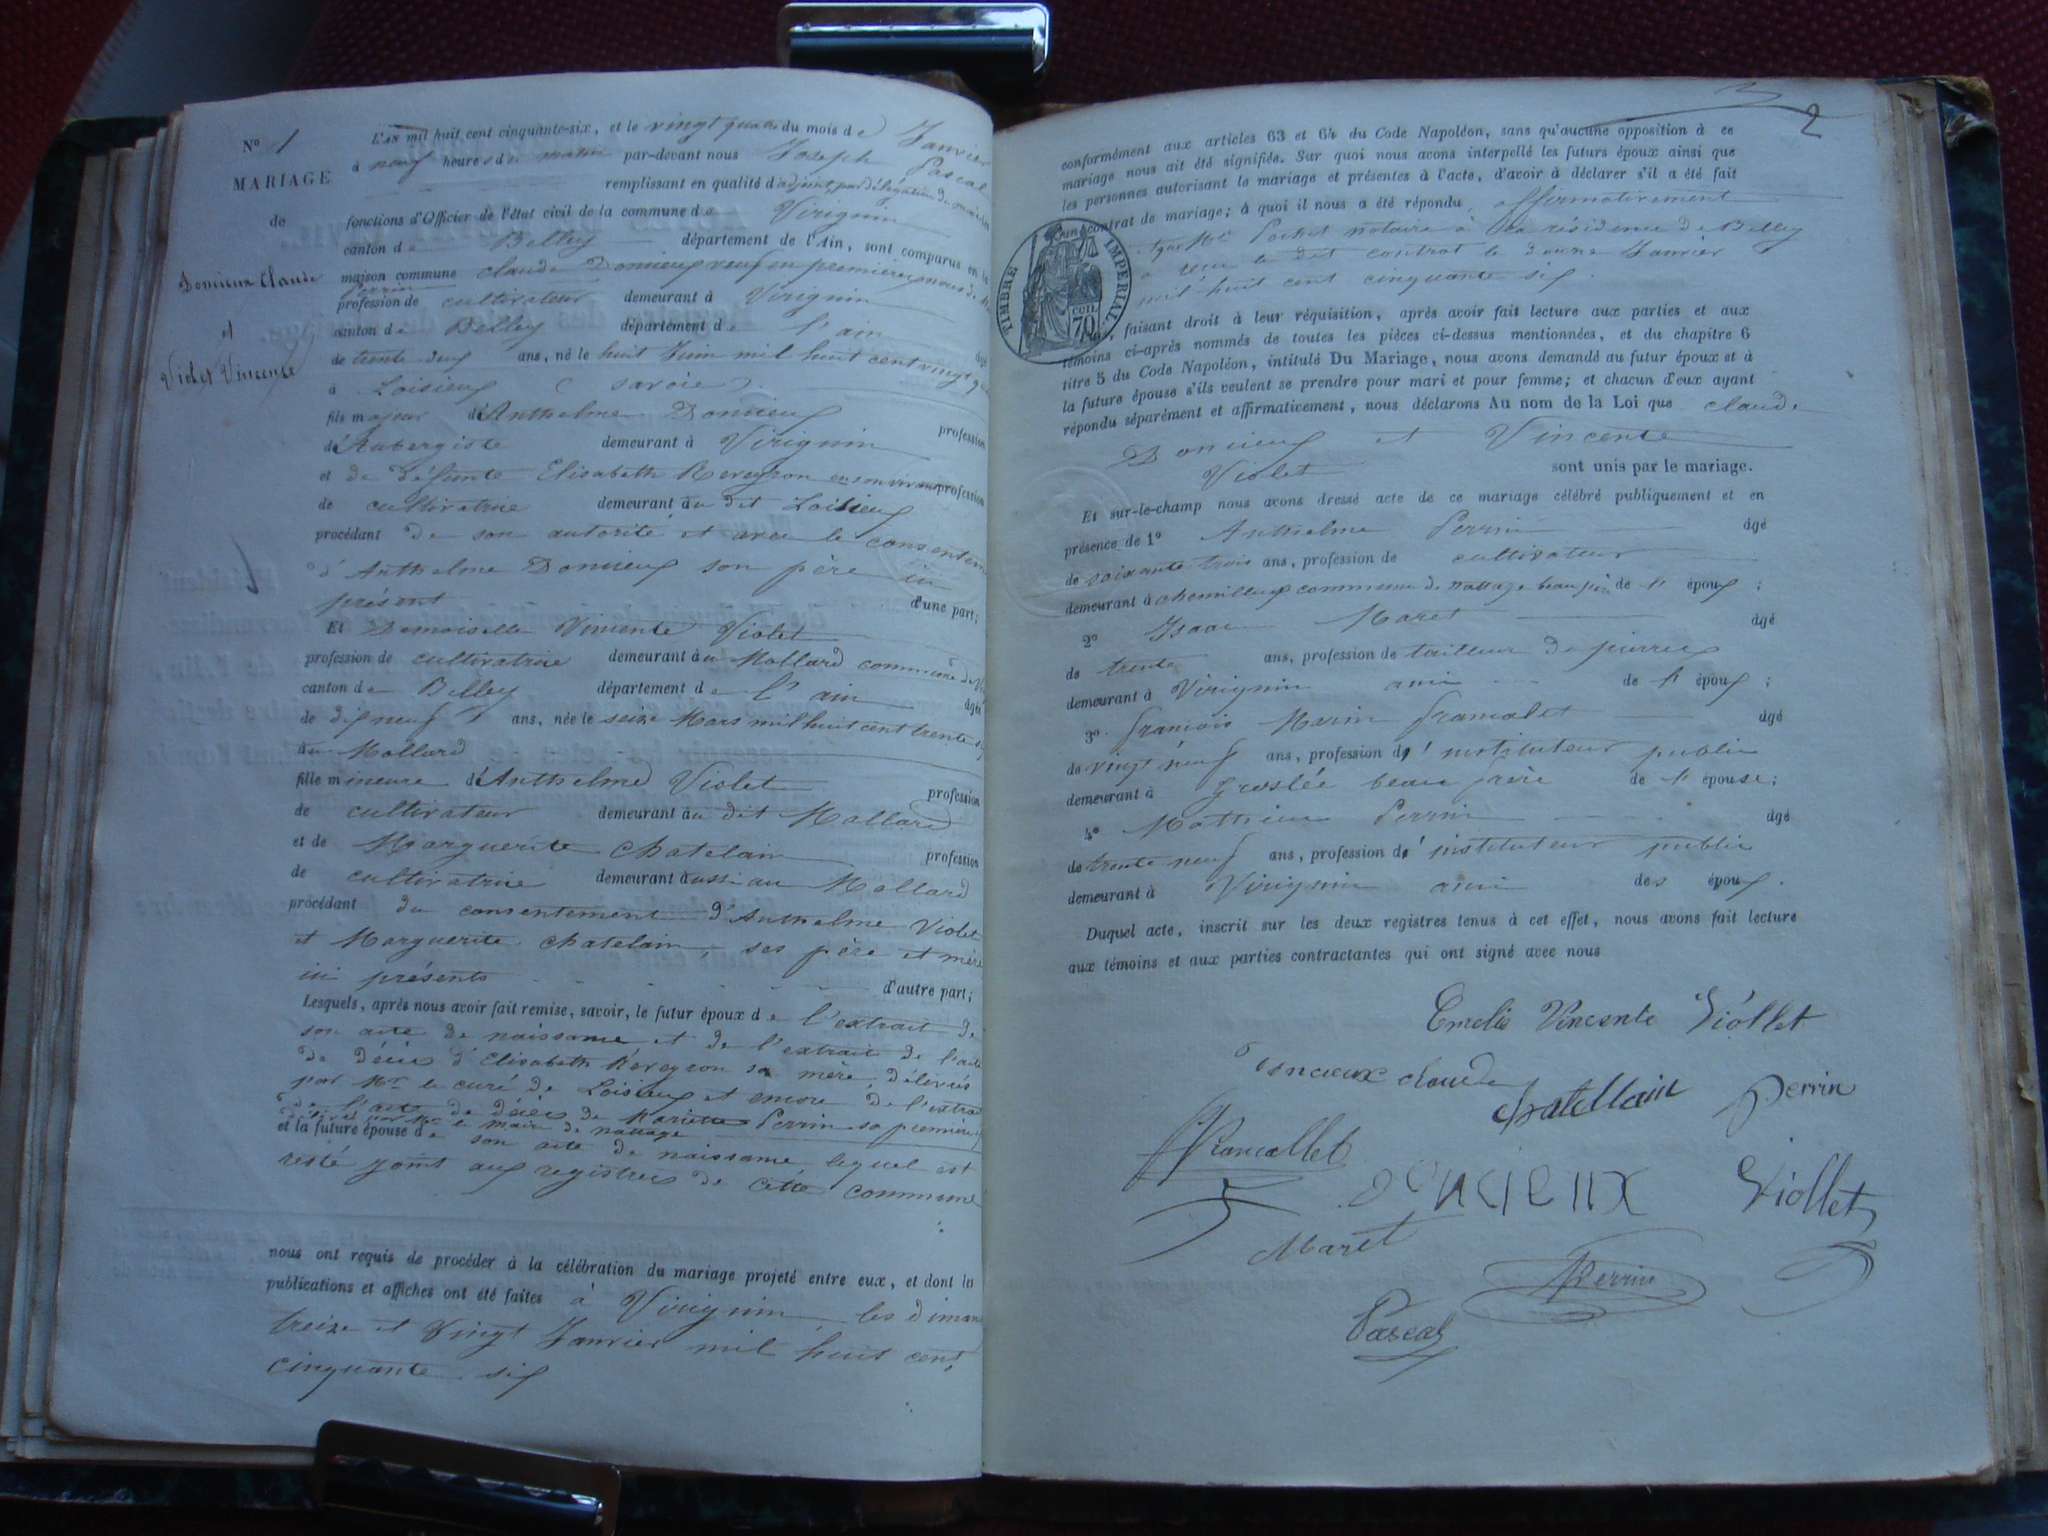 N° 1
MARIAGE
de
Doncieux Claude
et
Violet Vincente
L'AN mil huit cent cinquante-six, et le vingt quatre du mois de Janvier
à neuf heures du matin par-devant nous Joseph Pascal
remplissant en qualité d'adjoint par délégation du maire les
fonctions d'Officier de l'état civil de la commune de Virignin
canton de Belley département de l'Ain, sont comparus en la
maison commune claude Doncieux veuf en premières noces de
Perrin
profession de cultivateur demeurant à Virignin
canton de Belley département de l'ain âgé
de trente deux ans, né le huit Juin mil huit cent vingt
à Loisieux (savoie).
fils majeur d'Anthelme Doncieux profession
d'Aubergiste demeurant à Virignin
et de défunte Elisabeth Reveyron en son vivant profession
de cultivatrice demeurant au dit Loisieux
procédant de son autorité et avec le consentem
d'Anthelme Doncieux son père ici
présent d'une part;
Et Demoiselle Vincente Violet
profession de cultivatrice demeurant au Mollard commune de
canton de Belley département de l'ain âgée
de dix neuf ans, née le seize Mars mil huit cent trente
au Mollard
fille mineure d'Anthelme Violet profession
de cultivateur demeurant au dit Mollard
et de Marguerite Chatelain profession
de cultivatrice demeurant aussi au Mollard
procédant du consentement d'Anthelme Violet
et Marguerite Chatelain, ses père et mère
ici présents d'autre part;
Lesquels, après nous avoir fait remise, savoir, le futur époux de l'extrait de
son acte de naissance et de l'extrait de l'acte
de décès d'Elisabeth Reveyron sa mère, délivrés
par Mr le curé de Loisieux et encore de l'extrait
de l'acte de décès de Mariette Perrin sa première
délivré par Mr le maire de nattage
et la future épouse de son acte de naissance lequel est
resté joint aux registres de cette commune
nous ont requis de procéder à la célébration du mariage projeté entre eux, et dont les
publications et affiches ont été faites à Virignin les diman
treize et vingt Janvier mil huit cent
cinquante six
2
conformément aux articles 63 et 64 du Code Napoléon, sans qu'aucune opposition à ce
mariage nous ait été signifiée. Sur quoi nous avons interpellé les futurs époux ainsi que
les personnes autorisant le mariage et présentes à l'acte, d'avoir à déclarer s'il a été fait
un contrat de mariage; à quoi il nous a été répondu affirmativement
et que Me Pochet notaire à la résidence de Belley
a reçu le dit contrat le douze Janvier
mil huit cent cinquante six.
TIMBRE IMPERIAL
70
faisant droit à leur réquisition, après avoir fait lecture aux parties et aux
témoins ci-après nommés de toutes les pièces ci-dessus mentionnées, et du chapitre 6
titre 5 du Code Napoléon, intitulé Du Mariage, nous avons demandé au futur époux et à
la future épouse s'ils veulent se prendre pour mari et pour femme; et chacun d'eux ayant
répondu séparément et affirmativement, nous déclarons Au nom de la Loi que claude
Doncieux et Vincente
Violet sont unis par le mariage.
Et sur-le-champ nous avons dressé acte de ce mariage célébré publiquement et en
présence de 1° Anthelme Perrin âgé
de soixante trois ans, profession de cultivateur
demeurant à chemilleux commune de nattage beau père de l'époux;
2° Isaac Maret âgé
de trente ans, profession de tailleur de pierres
demeurant à Virignin ami de l'époux;
3° françois Marin francolet âgé
de vingt neuf ans, profession d'instituteur public
demeurant à Groslée beau frère de l'épouse;
4° Mathieu Perrin âgé
de trente neuf ans, profession d'instituteur public
demeurant à Virignin ami des époux.
Duquel acte, inscrit sur les deux registres tenus à cet effet, nous avons fait lecture
aux témoins et aux parties contractantes qui ont signé avec nous
Emelie Vincente Viollet
Doncieux claude
chatellain Perrin
Francollet
doncieux Viollet
Maret
Perrin
Pascal